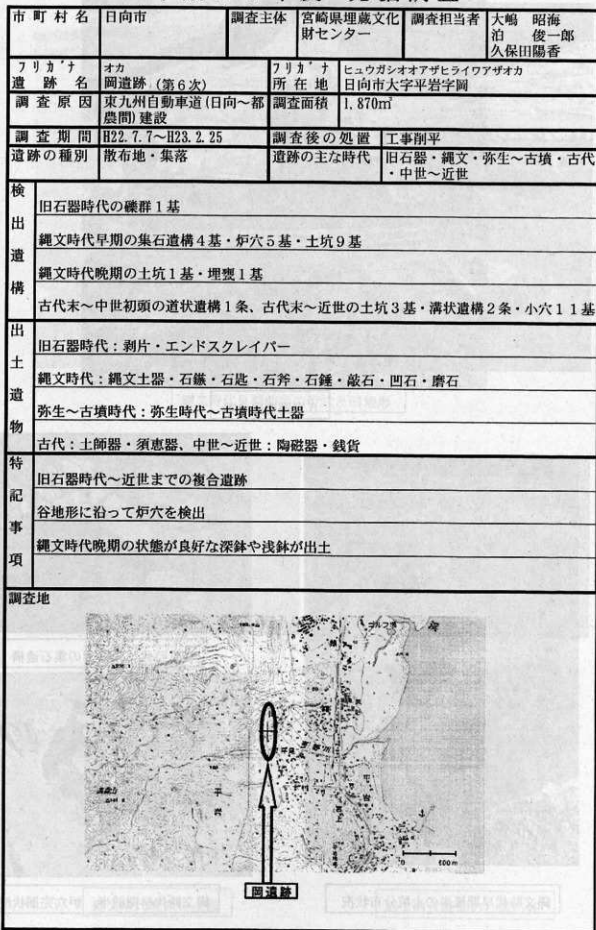 市町村名 日向市 調査主体 宮崎県埋蔵文化財センター 調査担当者 大嶋 昭海
泊 俊一郎
久保田陽香
フリガナ オカ フリガナ ヒュウガシオオアザヒライワアザオカ
遺跡名 岡遺跡(第6次) 所在地 日向市大字平岩字岡
調査原因 東九州自動車道(日向~都農間)建設 調査面積 1,870㎡
調査期間 H22.7.7~H23.2.25 調査後の処置 工事削平
遺跡の種別 散布地・集落 遺跡の主な時代 旧石器・縄文・弥生~古墳・古代・中世~近世
検出遺構
旧石器時代の礫群1基
縄文時代早期の集石遺構4基・炉穴5基・土坑9基
縄文時代晩期の土坑1基・埋甕1基
古代末~中世初頭の道状遺構1条、古代末~近世の土坑3基・溝状遺構2条・小穴11基
出土遺物
旧石器時代:剥片・エンドスクレイパー
縄文時代:縄文土器・石鏃・石匙・石斧・石錘・敲石・凹石・磨石
弥生~古墳時代:弥生時代~古墳時代土器
古代:土師器・須恵器、中世~近世:陶磁器・銭貨
特記事項
旧石器時代~近世までの複合遺跡
谷地形に沿って炉穴を検出
縄文時代晩期の状態が良好な深鉢や浅鉢が出土
調査地
0 600m
岡遺跡